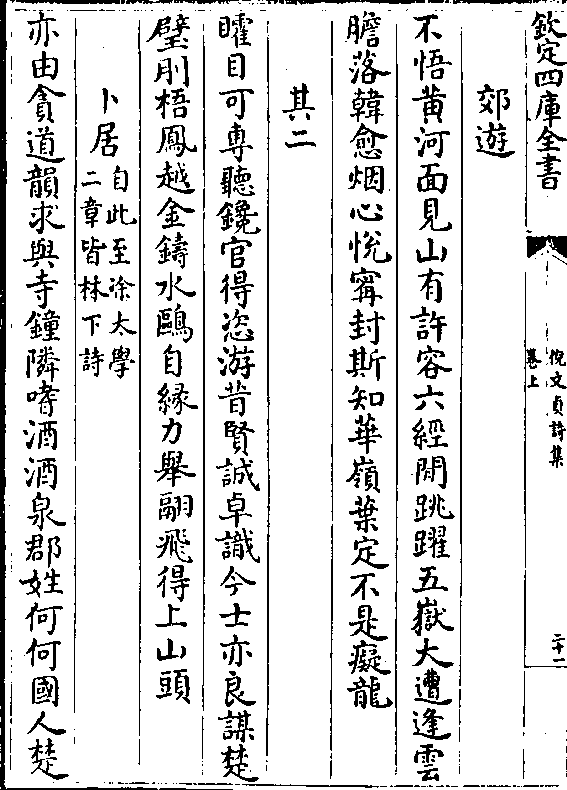 欽定四庫全書
倪文貞詩集
卷上
二十一
郊遊
不悟黄河面見山有許容六經閒跳躍五嶽大遭逢雲
膽落韓愈烟心悅寗封斯知華嶺葉定不是癡龍
其二
矐目可專聽鑱官得恣游昔賢誠卓識今士亦良謀楚
璧刖梧鳳越金鑄水鷗自緣力舉翮飛得上山頭
卜居
自此至涂太學
二章皆林下詩
亦由貪道韻求與寺鐘隣嗜酒酒泉郡姓何何國人楚